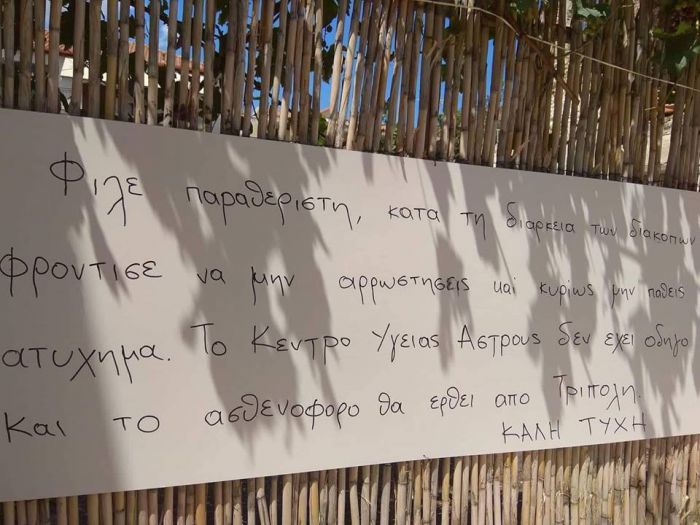 Φιλε παραθεριστη, κατα τη διαρκεια των διακοπων
φροντισε να μην αρρωστησεις και κυριως μην παθεις
ατυχημα. Το Κεντρο Υγειας Αστρους δεν εχει οδηγο
Και το ασθενοφορο θα ερθει απο Τριπολη.
ΚΑΛΗ ΤΥΧΗ